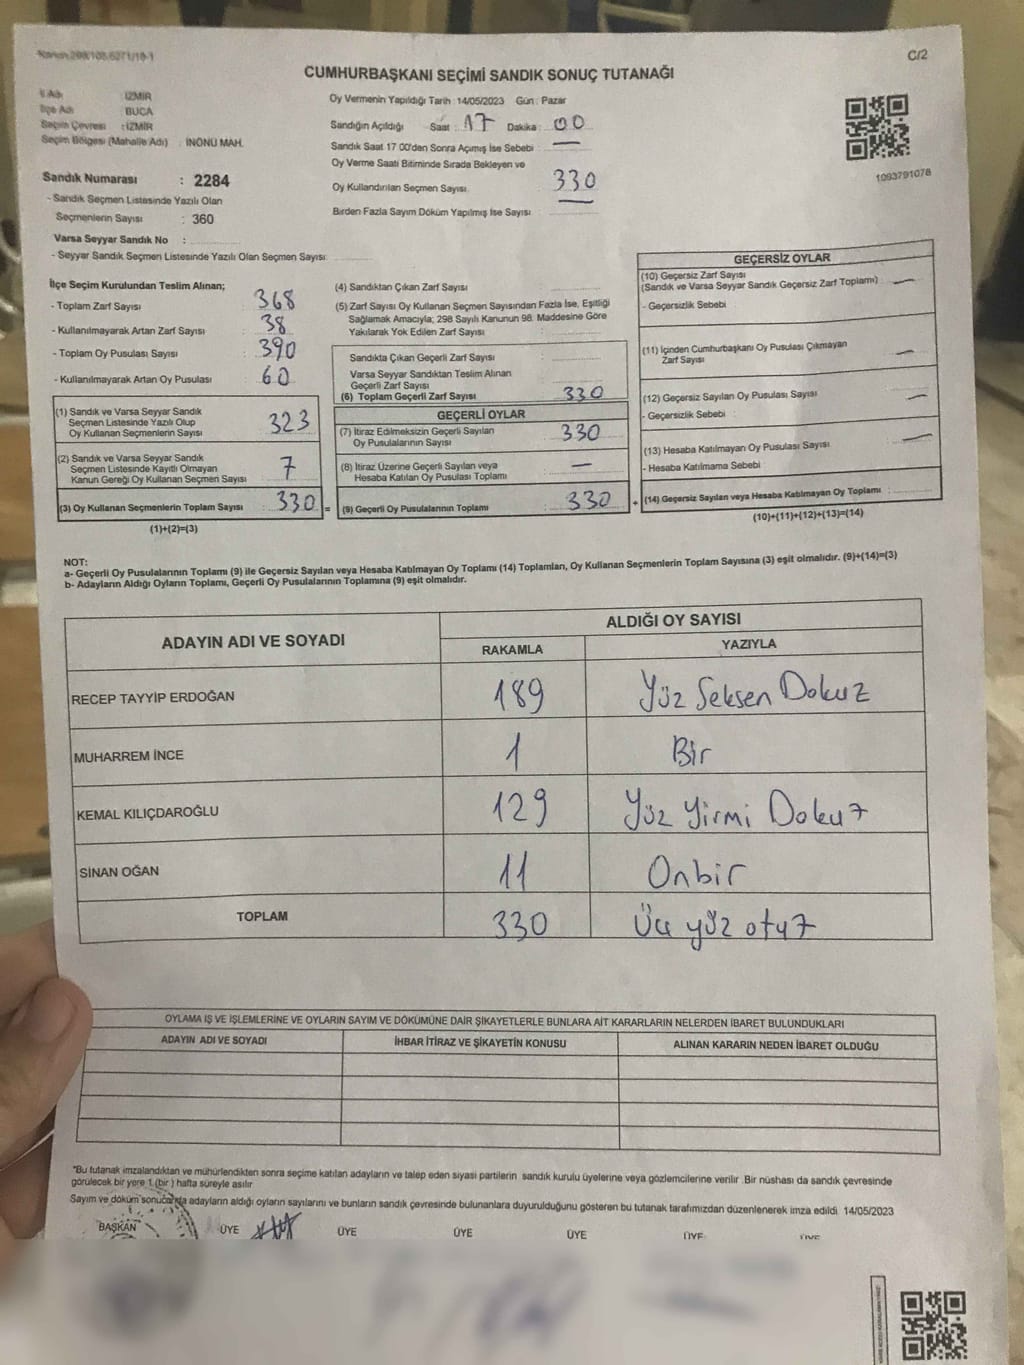 Kanun:298/108,6271/18-1
C/2
CUMHURBAŞKANI SEÇİMİ SANDIK SONUÇ TUTANAĞI
İl Adı : İZMİR
İlçe Adı : BUCA
Seçim Çevresi : İZMİR
Seçim Bölgesi (Mahalle Adı) : İNÖNÜ MAH.
Oy Vermenin Yapıldığı Tarih : 14/05/2023 Gün : Pazar
Sandığın Açıldığı Saat : 17 Dakika : 00
Sandık Saat 17:00'den Sonra Açımış İse Sebebi : —
Oy Verme Saati Bitiminde Sırada Bekleyen ve
Oy Kullandırılan Seçmen Sayısı 330
Birden Fazla Sayım Döküm Yapılmış İse Sayısı :
1093791078
Sandık Numarası : 2284
- Sandık Seçmen Listesinde Yazılı Olan
Seçmenlerin Sayısı : 360
Varsa Seyyar Sandık No :
- Seyyar Sandık Seçmen Listesinde Yazılı Olan Seçmen Sayısı:
İlçe Seçim Kurulundan Teslim Alınan;
- Toplam Zarf Sayısı 368
- Kullanılmayarak Artan Zarf Sayısı : 38
- Toplam Oy Pusulası Sayısı 390
- Kullanılmayarak Artan Oy Pusulası : 60
(1) Sandık ve Varsa Seyyar Sandık
Seçmen Listesinde Yazılı Olup
Oy Kullanan Seçmenlerin Sayısı 323
(2) Sandık ve Varsa Seyyar Sandık
Seçmen Listesinde Kayıtlı Olmayan
Kanun Gereği Oy Kullanan Seçmen Sayısı 7
(3) Oy Kullanan Seçmenlerin Toplam Sayısı : 330 =
(1)+(2)=(3)
(4) Sandıktan Çıkan Zarf Sayısı :
(5) Zarf Sayısı Oy Kullanan Seçmen Sayısından Fazla İse, Eşitliği
Sağlamak Amacıyla; 298 Sayılı Kanunun 98. Maddesine Göre
Yakılarak Yok Edilen Zarf Sayısı :
Sandıkta Çıkan Geçerli Zarf Sayısı :
Varsa Seyyar Sandıktan Teslim Alınan
Geçerli Zarf Sayısı :
(6) Toplam Geçerli Zarf Sayısı : 330
GEÇERLİ OYLAR
(7) İtiraz Edilmeksizin Geçerli Sayılan
Oy Pusulalarının Sayısı : 330
(8) İtiraz Üzerine Geçerli Sayılan veya
Hesaba Katılan Oy Pusulası Toplamı : —
(9) Geçerli Oy Pusulalarının Toplamı : 330 +
GEÇERSİZ OYLAR
(10) Geçersiz Zarf Sayısı
(Sandık ve Varsa Seyyar Sandık Geçersiz Zarf Toplamı) : —
- Geçersizlik Sebebi :
(11) İçinden Cumhurbaşkanı Oy Pusulası Çıkmayan
Zarf Sayısı : —
(12) Geçersiz Sayılan Oy Pusulası Sayısı : —
- Geçersizlik Sebebi :
(13) Hesaba Katılmayan Oy Pusulası Sayısı : —
- Hesaba Katılmama Sebebi
(14) Geçersiz Sayılan veya Hesaba Katılmayan Oy Toplamı :
(10)+(11)+(12)+(13)=(14)
NOT:
a- Geçerli Oy Pusulalarının Toplamı (9) ile Geçersiz Sayılan veya Hesaba Katılmayan Oy Toplamı (14) Toplamları, Oy Kullanan Seçmenlerin Toplam Sayısına (3) eşit olmalıdır. (9)+(14)=(3)
b- Adayların Aldığı Oyların Toplamı, Geçerli Oy Pusulalarının Toplamına (9) eşit olmalıdır.
ADAYIN ADI VE SOYADI
ALDIĞI OY SAYISI
RAKAMLA YAZIYLA
RECEP TAYYİP ERDOĞAN 189 Yüz Seksen Dokuz
MUHARREM İNCE 1 Bir
KEMAL KILIÇDAROĞLU 129 Yüz Yirmi Dokuz
SİNAN OĞAN 11 Onbir
TOPLAM 330 Üç yüz otuz
OYLAMA İŞ VE İŞLEMLERİNE VE OYLARIN SAYIM VE DÖKÜMÜNE DAİR ŞİKAYETLERLE BUNLARA AİT KARARLARIN NELERDEN İBARET BULUNDUKLARI
ADAYIN ADI VE SOYADI İHBAR İTİRAZ VE ŞİKAYETİN KONUSU ALINAN KARARIN NEDEN İBARET OLDUĞU
*Bu tutanak imzalandıktan ve mühürlendikten sonra seçime katılan adayların ve talep eden siyasi partilerin sandık kurulu üyelerine veya gözlemcilerine verilir .Bir nüshası da sandık çevresinde
görülecek bir yere 1 (bir ) hafta süreyle asılır
Sayım ve döküm sonucanda adayların aldığı oyların sayılarını ve bunların sandık çevresinde bulunanlara duyurulduğunu gösteren bu tutanak tarafımızdan düzenlenerek imza edildi 14/05/2023
BAŞKAN ÜYE ÜYE ÜYE ÜYE ÜYE ÜYE